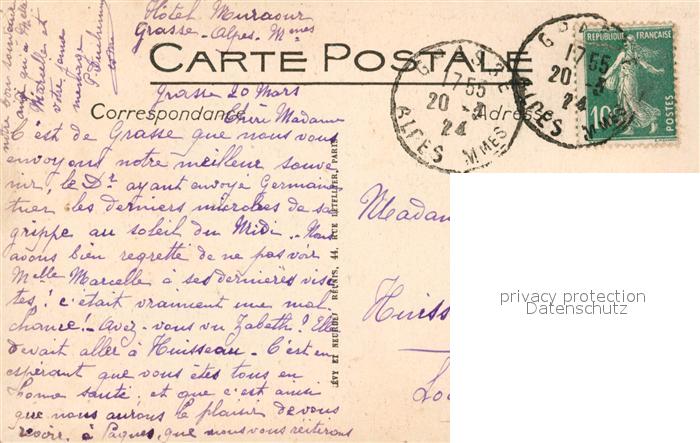 Hôtel Muraour
Grasse - Alpes Mmes
CARTE POSTALE
Correspondance
Adresse
RÉPUBLIQUE FRANÇAISE
10
POSTES
GRASSE
1755
20 -3
24
ALPES MMES
GRASSE
1755
20 -3
24
ALPES MMES
Grasse 20 Mars
Chère Madame
C'est de Grasse que nous vous
envoyons notre meilleur souve
nir, le Dr ayant envoyé Germaine
tuer les derniers microbes de sa
grippe au soleil du Midi. - Nous
avons bien regretté de ne pas voir
Melle Marcelle à ses dernières visi
tes! c'était vraiment une mal
chance! - Avez-vous vu Zabeth? Elle
devait aller à Huisseau. - C'est en
espérant que vous êtes tous en
bonne santé, et que c'est ainsi
que nous aurons le plaisir de vous
revoir, à Pâques, que nous vous réitérons
notre bon souvenir
ainsi qu'à Melle
Marcelle et
votre jeune
LÉVY ET NEURDEIN RÉUNIS, 44, RUE LETELLIER, PARIS
Madam
Huiss
Lo
privacy protection
Datenschutz